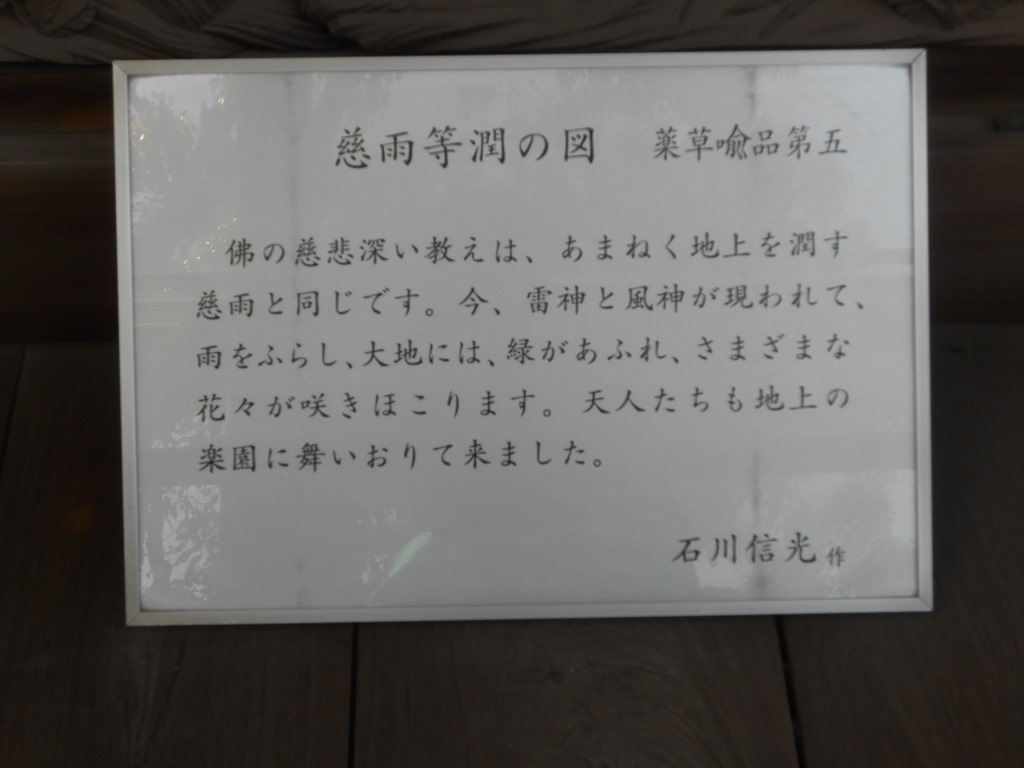 慈雨等潤の図　薬草喩品第五
佛の慈悲深い教えは、あまねく地上を潤す
慈雨と同じです。今、雷神と風神が現われて、
雨をふらし、大地には、緑があふれ、さまざまな
花々が咲きほこります。天人たちも地上の
楽園に舞いおりて来ました。
石川信光作